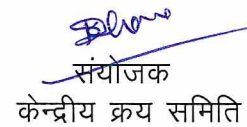 संयोजक
केन्द्रीय क्रय समिति